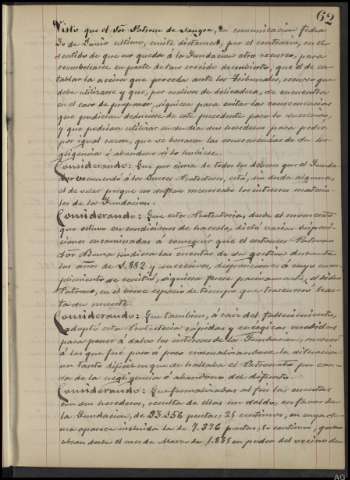 62
Visto que el Sor Patrono de Sangre, en comunicación fecha
30 de Junio último, emite dictamen, por el contrario, en el
sentido de que no queda á la Fundación otro recurso, para
reembolsarse de parte de tan crecido descubierto, que el de en-
tablar la acción que proceda ante los Tribunales, recurso que
debe utilizarse y que, por motivos de delicadeza, se encuentra
en el caso de proponer, siquiera para evitar las consecuencias
que pudieran deducirse de este precedente para lo sucesivo,
y que podrían utilizar en su día sus herederos para poder,
por igual causa, que se borraran las consecuencias de su ne-
gligencia ó abandono si lo hubiere.
Considerando: Que, por cima de todos los deberes que el Funda-
dor encomendó á los Sres Patronos, está, sin duda alguna,
el de velar porque no sufran menoscabo los intereses materia-
les de la Fundación.
Considerando: Que este Patronato, desde el momento
que estuvo en condiciones de hacerlo, dictó varias disposi-
ciones encaminadas á conseguir que el entonces Patrono
Sor rindiera las cuentas de su gestión durante
los años de 1.882 y sucesivos, disposiciones á cuyo cum-
plimiento se resistió, siquiera fuera pasivamente, el dicho
Patrono, en el breve espacio de tiempo que trascurrió has-
ta su muerte.
Considerando: Que también, á raíz del fallecimiento,
adoptó este Patronato rápidas y enérgicas medidas
para poner á salvo los intereses de la Fundación, merced
á las que fué poco á poco normalizándose la situación
un tanto difícil en que se hallaba el Patronato por cau-
sa de la negligencia ó abandono del difunto.
Considerando: Que formalizadas al fin las cuentas
con sus herederos, resulta de ellas un saldo, en favor de
la Fundación, de 23.256 pesetas, 25 céntimos, en cuya su-
ma aparece incluida la de 7.376 pesetas, céntimos, que
obran desde el mes de Marzo de 1.885 en poder del vecino de